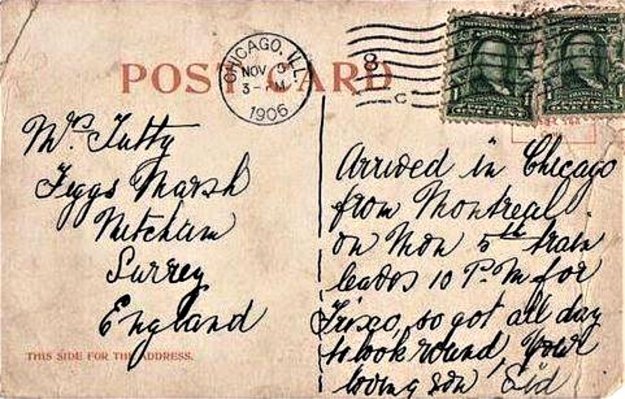 POST CARD
CHICAGO, ILL.
NOV 5
3 - PM
1906
8
C
Mrs Tutty
Figgs Marsh
Mitcham
Surrey
England
THIS SIDE FOR THE ADDRESS.
Arrived in Chicago
from Montreal
on Mon 5th train
leaves 10 P.M for
Frisco, so got all day
to look round, Your
loving son Sid